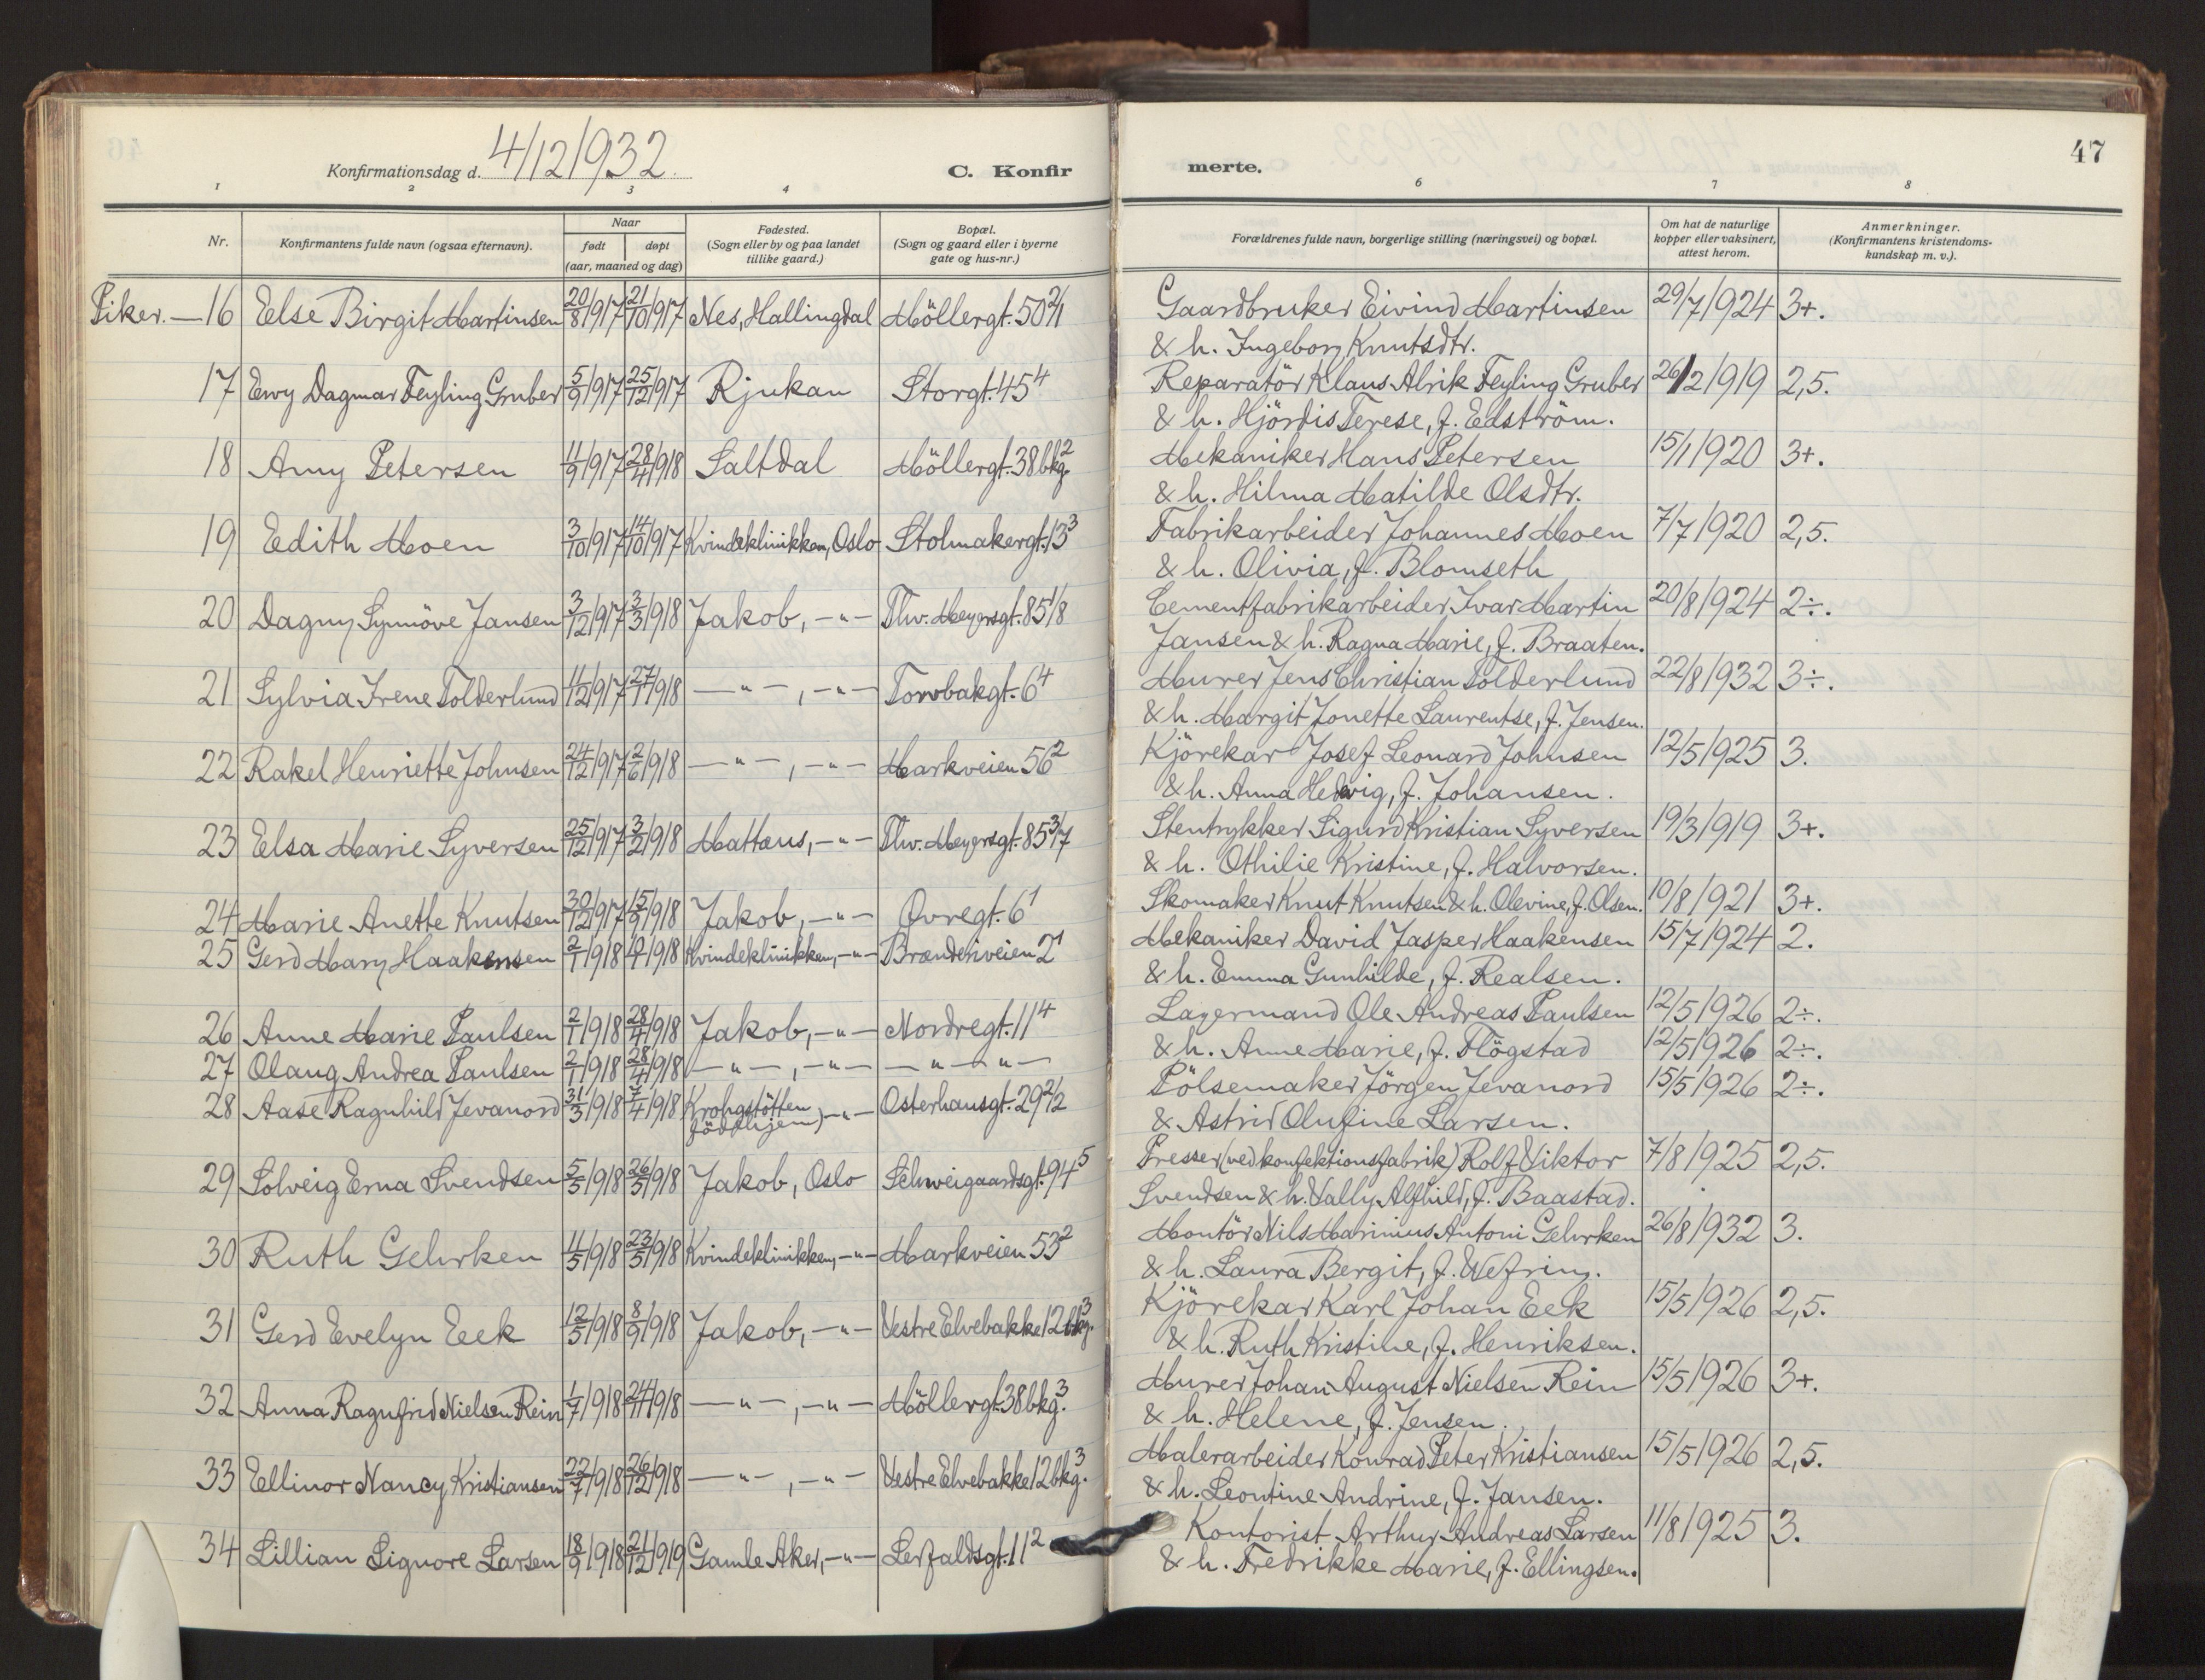 Konfirmationsdag d. 4/12/1932. C. Konfirmerte. 47
1 2 3 4 6 7 8
Nr. Konfirmantens fulde navn (ogsaa efternavn). Naar født døpt (aar, maaned og dag) Fødested. (Sogn eller by og paa landet tillike gaard.) Bopæl. (Sogn og gaard eller i byerne gate og hus-nr.) Forældrenes fulde navn, borgerlige stilling (næringsvei) og bopæl. Om hat de naturlige kopper eller vaksinert, attest herom. Anmerkninger. (Konfirmantens kristendomskundskap m. v.).
Piker. — 16 Else Birgit Martinsen 20/8 1917 21/10 1917 Nes, Hallingdal Möllergt. 50 2/1 Gaardbruker Eivind Martinsen 29/7 1924 3+.
& h. Ingeborg Knutsdtr.
17 Ewy Dagmar Feyling Gruber 5/9 1917 25/12 1917 Rjukan Storgt. 45 4 Reparatör Klaus Alrik Feyling Gruber 26/2 1919 2,5.
& h. Hjördis Terese, f. Edström.
18 Amy Petersen 11/9 1917 28/4 1918 Saltdal Möllergt. 38 bkg. 2 Mekaniker Hans Petersen 15/1 1920 3+.
& h. Hilma Matilde Olsdtr.
19 Edith Moen 3/10 1917 14/10 1917 Kvindeklinikken, Oslo Stolmakergt. 13 3 Fabrikarbeider Johannes Moen 7/7 1920 2,5.
& h. Olivia, f. Blomseth
20 Dagny Synnöve Jansen 3/12 1917 3/3 1918 Jakob, —"— Thv. Meyersgt. 85 1/8 Cementfabrikarbeider Ivar Martin 20/8 1924 2÷.
Jansen & h. Ragna Marie, f. Braaten.
21 Sylvia Irene Tolderlund 11/12 1917 27/1 1918 —"—, —"— Torvbakgt. 6 4 Murer Jens Christian Tolderlund 22/8 1932 3÷.
& h. Margit Jonette Laurentse, f. Jensen.
22 Rakel Henriette Johnsen 24/12 1917 2/6 1918 —"—, —"— Markveien 56 2 Kjörekar Josef Leonard Johnsen 12/5 1925 3.
& h. Anna Hedvig, f. Johansen.
23 Elsa Marie Syversen 25/12 1917 3/2 1918 Mattæus, —"— Thv. Meyersgt. 85 3/7 Stentrykker Sigurd Kristian Syversen 19/3 1919 3+.
& h. Othilie Kristine, f. Halvorsen.
24 Marie Anette Knutsen 30/12 1917 15/9 1918 Jakob, —"— Övregt. 6 1 Skomaker Knut Knutsen & h. Olevine, f. Olsen. 10/8 1921 3+.
25 Gerd Mary Haakensen 2/1 1918 1918 Kvindeklinikken, —"— Brænderiveien 2 1 Mekaniker David Jasper Haakensen 15/7 1924 2.
& h. Emma Gunhilde, f. Realsen.
26 Anne Marie Paulsen 2/1 1918 28/4 1918 Jakob, —"— Nordregt. 11 4 Lagermand Ole Andreas Paulsen 12/5 1926 2÷.
27 Olaug Andrea Paulsen 2/1 1918 28/4 1918 —"—, —"— —"— —"— & h. Anne Marie, f. Flögstad 12/5 1926 2÷.
28 Aase Ragnhild Jevanord 31/3 1918 7/4 1918 Krohgstötten födehjem, —"— Osterhausgt. 29 2/2 Pölsemaker Jörgen Jevanord 15/5 1926 2÷.
& Astrid Olufine Larsen.
29 Solveig Erna Svendsen 5/5 1918 26/5 1918 Jakob, Oslo Schweigaardsgt. 94 5 Presser (ved konfektionsfabrik) Rolf Viktor 7/8 1925 2,5.
Svendsen & h. Vally Alfhild, f. Baastad.
30 Ruth Gehrken 11/5 1918 23/5 1918 Kvindeklinikken, —"— Markveien 53 2 Montör Nils Marinius Antoni Gehrken 26/8 1932 3.
& h. Laura Bergit, f. Wefring.
31 Gerd Evelyn Eek 12/5 1918 8/9 1918 Jakob, —"— Vestre Elvebakke 12 bkg. 3 Kjörekar Karl Johan Eek 15/5 1926 2,5.
& h. Ruth Kristine, f. Henriksen.
32 Anna Ragnfrid Nielsen Rein 1/7 1918 24/11 1918 —"—, —"— Möllergt. 38 bkg. 3 Murer Johan August Nielsen Rein 15/5 1926 3+.
& h. Helene, f. Jensen.
33 Ellinor Nancy Kristiansen 22/7 1918 26/12 1918 —"—, —"— Vestre Elvebakke 12 bkg. 3 Malerarbeider Konrad Peter Kristiansen 15/5 1926 2,5.
& h. Leontine Andrine, f. Jansen.
34 Lillian Signore Larsen 18/9 1918 21/12 1919 Gamle Aker, —"— Lerfaldsgt. 11 2 Kontorist Arthur Andreas Larsen 11/8 1925 3.
& h. Fredrikke Marie, f. Ellingsen.